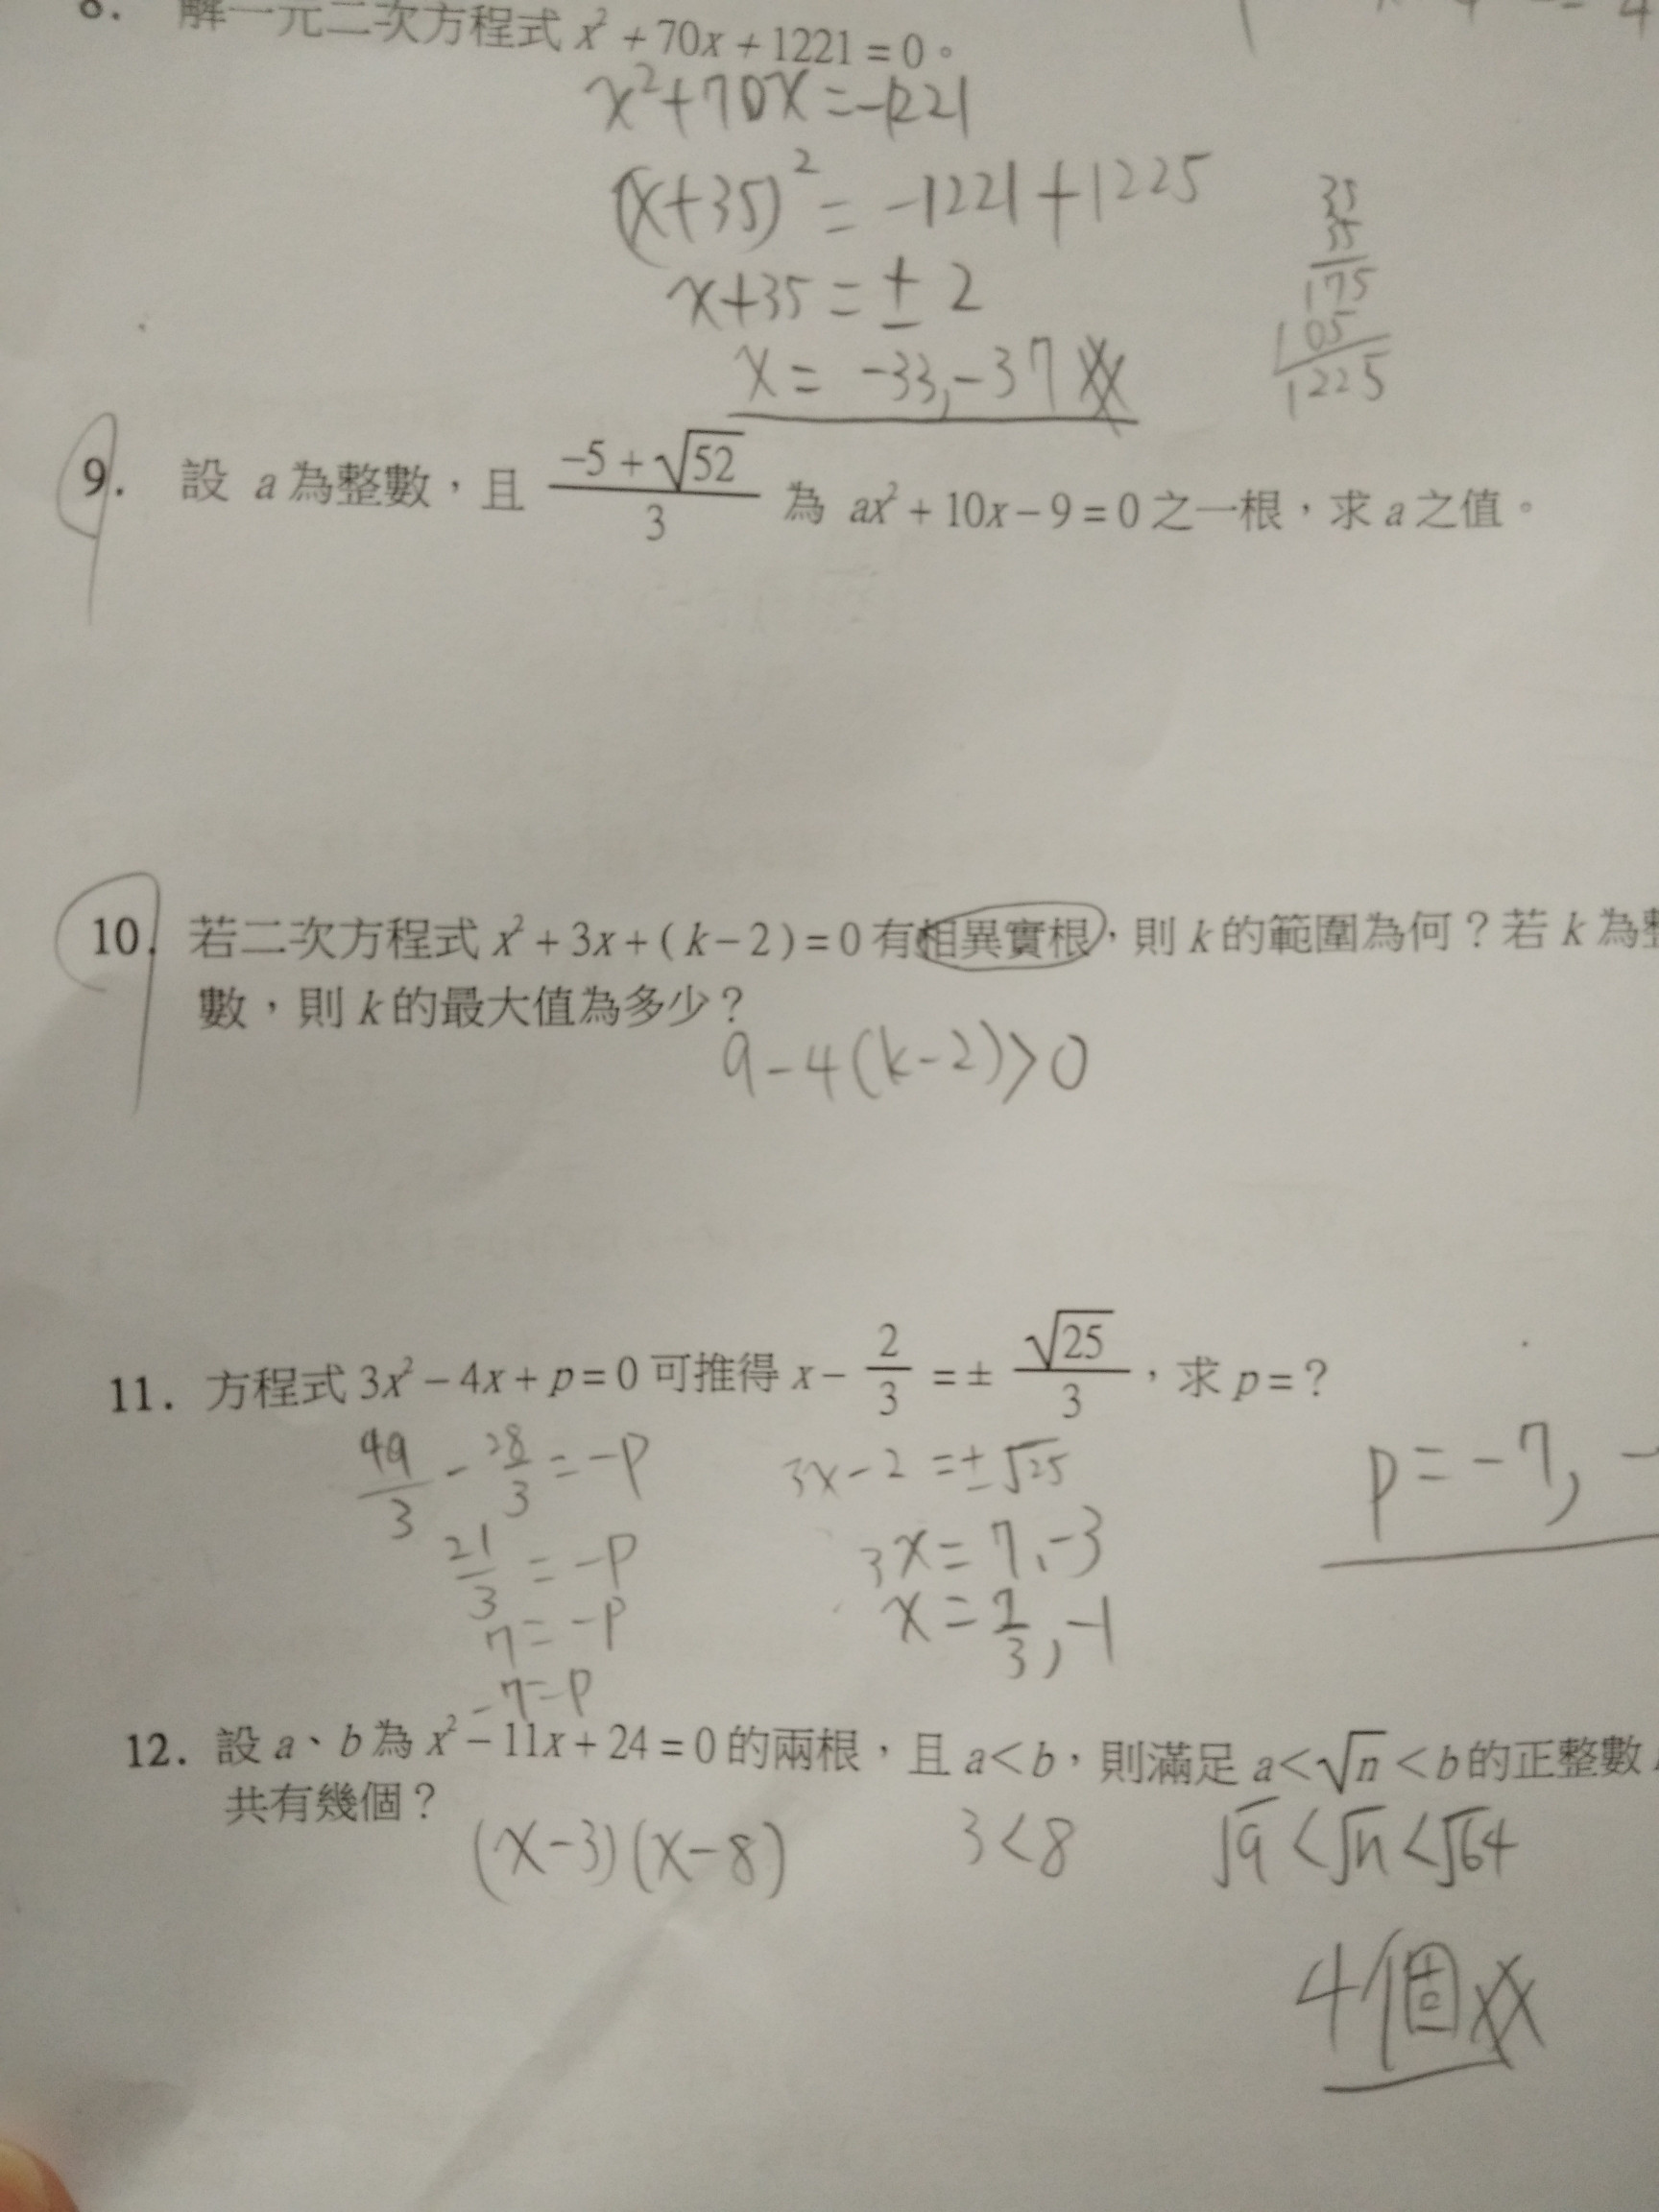 8. 解一元二次方程式 x² + 70x + 1221 = 0。
x²+70x=-1221
(x+35)² = -1221+1225
x+35 = ± 2
x = -33, -37
35
35
175
105
1225
9. 設 a 為整數,且 (-5 + √52)/3 為 ax² + 10x - 9 = 0 之一根,求 a 之值。
10. 若二次方程式 x² + 3x + ( k - 2 ) = 0 有相異實根,則 k 的範圍為何?若 k 為整
數,則 k 的最大值為多少?
9-4(k-2)>0
11. 方程式 3x² - 4x + p = 0 可推得 x - 2/3 = ± √25/3,求 p = ?
49/3 - 28/3 = -p
21/3 = -p
7 = -p
-7 = p
3x-2 = ±√25
3x = 7、-3
x = 7/3, -1
p = -7,
12. 設 a、b 為 x² - 11x + 24 = 0 的兩根,且 a < b,則滿足 a < √n < b 的正整數
共有幾個?
(x-3)(x-8)
3<8
√9 < √n < √64
4個